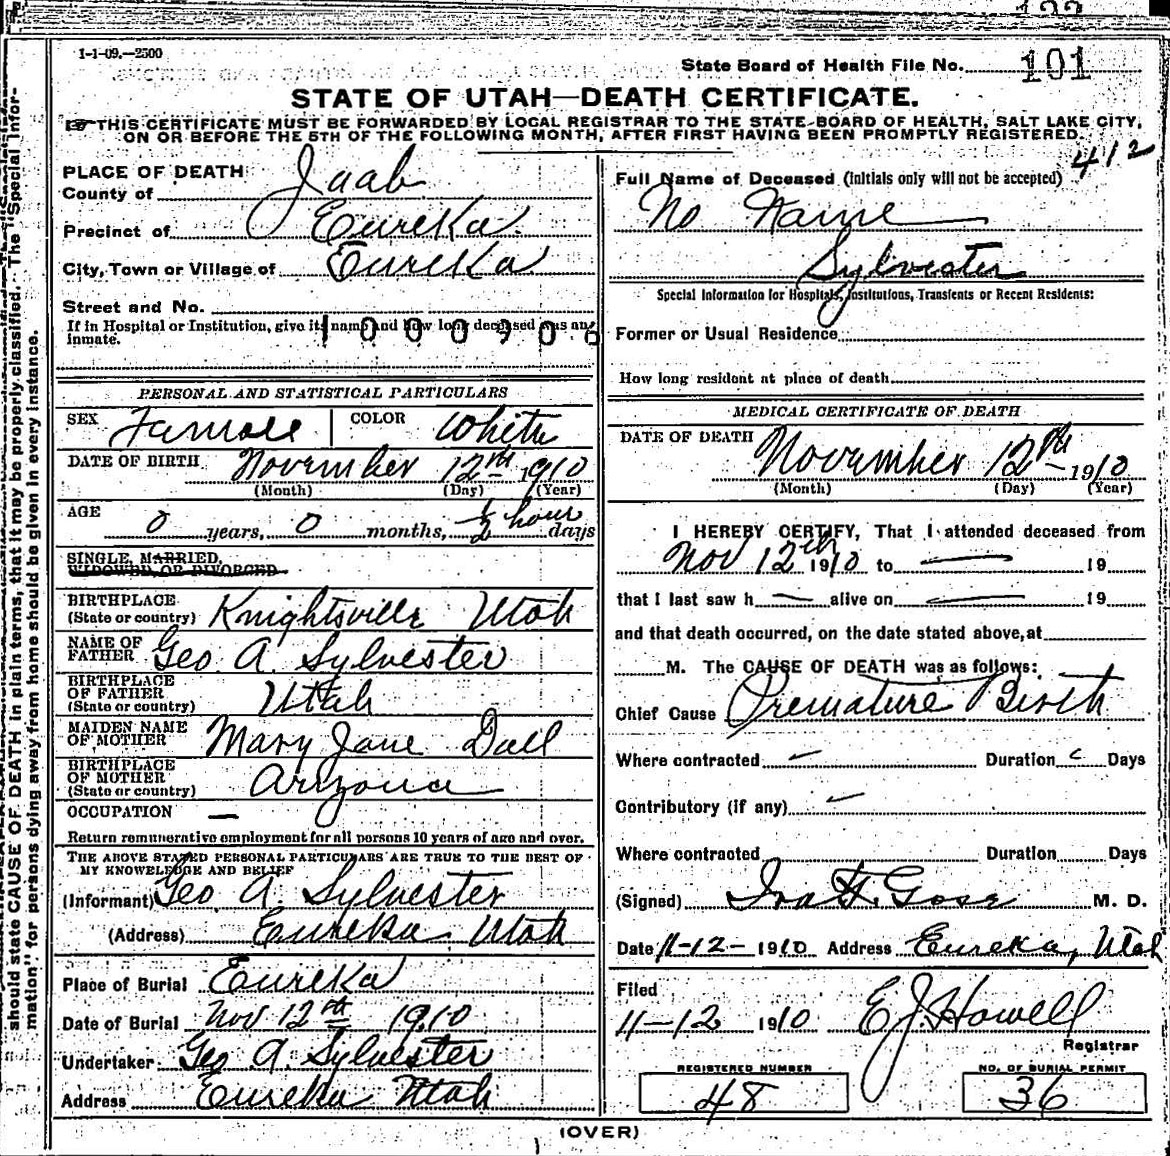 1-1-09.—2500
State Board of Health File No. 101
STATE OF UTAH—DEATH CERTIFICATE.
THIS CERTIFICATE MUST BE FORWARDED BY LOCAL REGISTRAR TO THE STATE BOARD OF HEALTH, SALT LAKE CITY,
ON OR BEFORE THE 5TH OF THE FOLLOWING MONTH, AFTER FIRST HAVING BEEN PROMPTLY REGISTERED.
412
PLACE OF DEATH
County of Juab
Precinct of Eureka
City, Town or Village of Eureka
Street and No.
If in Hospital or Institution, give its name and how long deceased was an
inmate.
1000906
PERSONAL AND STATISTICAL PARTICULARS
SEX Female COLOR White
DATE OF BIRTH November 12th 1910
(Month) (Day) (Year)
AGE 0 years, 0 months, 1/2 hour days
SINGLE, MARRIED,
WIDOWED, OR DIVORCED
BIRTHPLACE
(State or country) Knightsville Utah
NAME OF
FATHER Geo A. Sylvester
BIRTHPLACE
OF FATHER
(State or country) Utah
MAIDEN NAME
OF MOTHER Mary Jane Dall
BIRTHPLACE
OF MOTHER
(State or country) Arizona
OCCUPATION —
Return remunerative employment for all persons 10 years of age and over.
THE ABOVE STATED PERSONAL PARTICULARS ARE TRUE TO THE BEST OF
MY KNOWELEDGE AND BELIEF
(Informant) Geo. A. Sylvester
(Address) Eureka Utah
Place of Burial Eureka
Date of Burial Nov 12th 1910
Undertaker Geo A. Sylvester
Address Eureka Utah
Full Name of Deceased (initials only will not be accepted)
No Name
Sylvester
Special Information for Hospitals, Institutions, Transients or Recent Residents:
Former or Usual Residence
How long resident at place of death
MEDICAL CERTIFICATE OF DEATH
DATE OF DEATH November 12th 1910
(Month) (Day) (Year)
I HEREBY CERTIFY, That I attended deceased from
Nov 12th 1910 to — 19
that I last saw h — alive on — 19
and that death occurred, on the date stated above, at
M. The CAUSE OF DEATH was as follows:
Chief Cause Premature Birth
Where contracted — Duration Days
Contributory (if any) —
Where contracted Duration Days
(Signed) Ira F. Gose M. D.
Date 11-12-1910 Address Eureka, Utah
Filed
11-12 1910 E J. Howell
Registrar
REGISTERED NUMBER NO. OF BURIAL PERMIT
48 36
(OVER)
should state CAUSE OF DEATH in plain terms, that it may be properly classified. The "Special Infor-
mation" for persons dying away from home should be given in every instance.